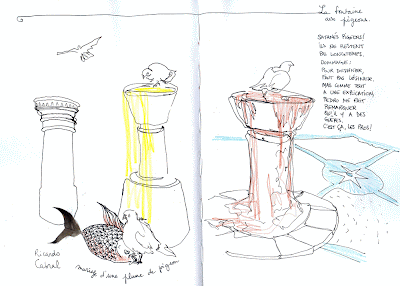 La fontaine
aux pigeons.
SATANÉS PIGEONS!
ILS NE RESTENT
PAS LONGTEMPS,
DOMMAGE!
POUR DESSINER,
FAUT PAS LÉSINER.
MAIS COMME TOUT
A UNE EXPLICATION,
PEDRO ME FAIT
REMARQUER
QU'IL Y A DES
CAFÉS.
C'EST ÇA, LES PROS!
Ricardo
Cabral
mariage d'une plume de pigeon